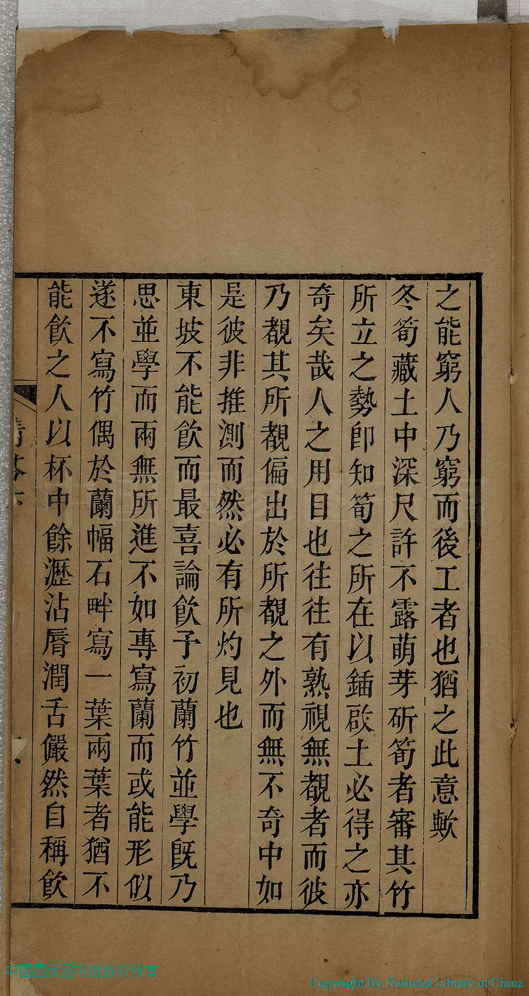 之能窮人乃窮而後工者也猶之此意歟
冬筍藏土中深尺許不露萌芽斫筍者審其竹
所立之勢卽知筍之所在以鍤啟土必得之亦
奇矣哉人之用目也往往有熟視無覩者而彼
乃覩其所覩偏出於所覩之外而無不奇中如
是彼非推測而然必有所灼見也
東坡不能飲而最喜論飲予初蘭竹並學旣乃
思並學而兩無所進不如專寫蘭而或能形似
遂不寫竹偶於蘭幅石畔寫一葉兩葉者猶不
能飲之人以杯中餘瀝沾脣潤舌儼然自稱飲
Copyright By National Library of China